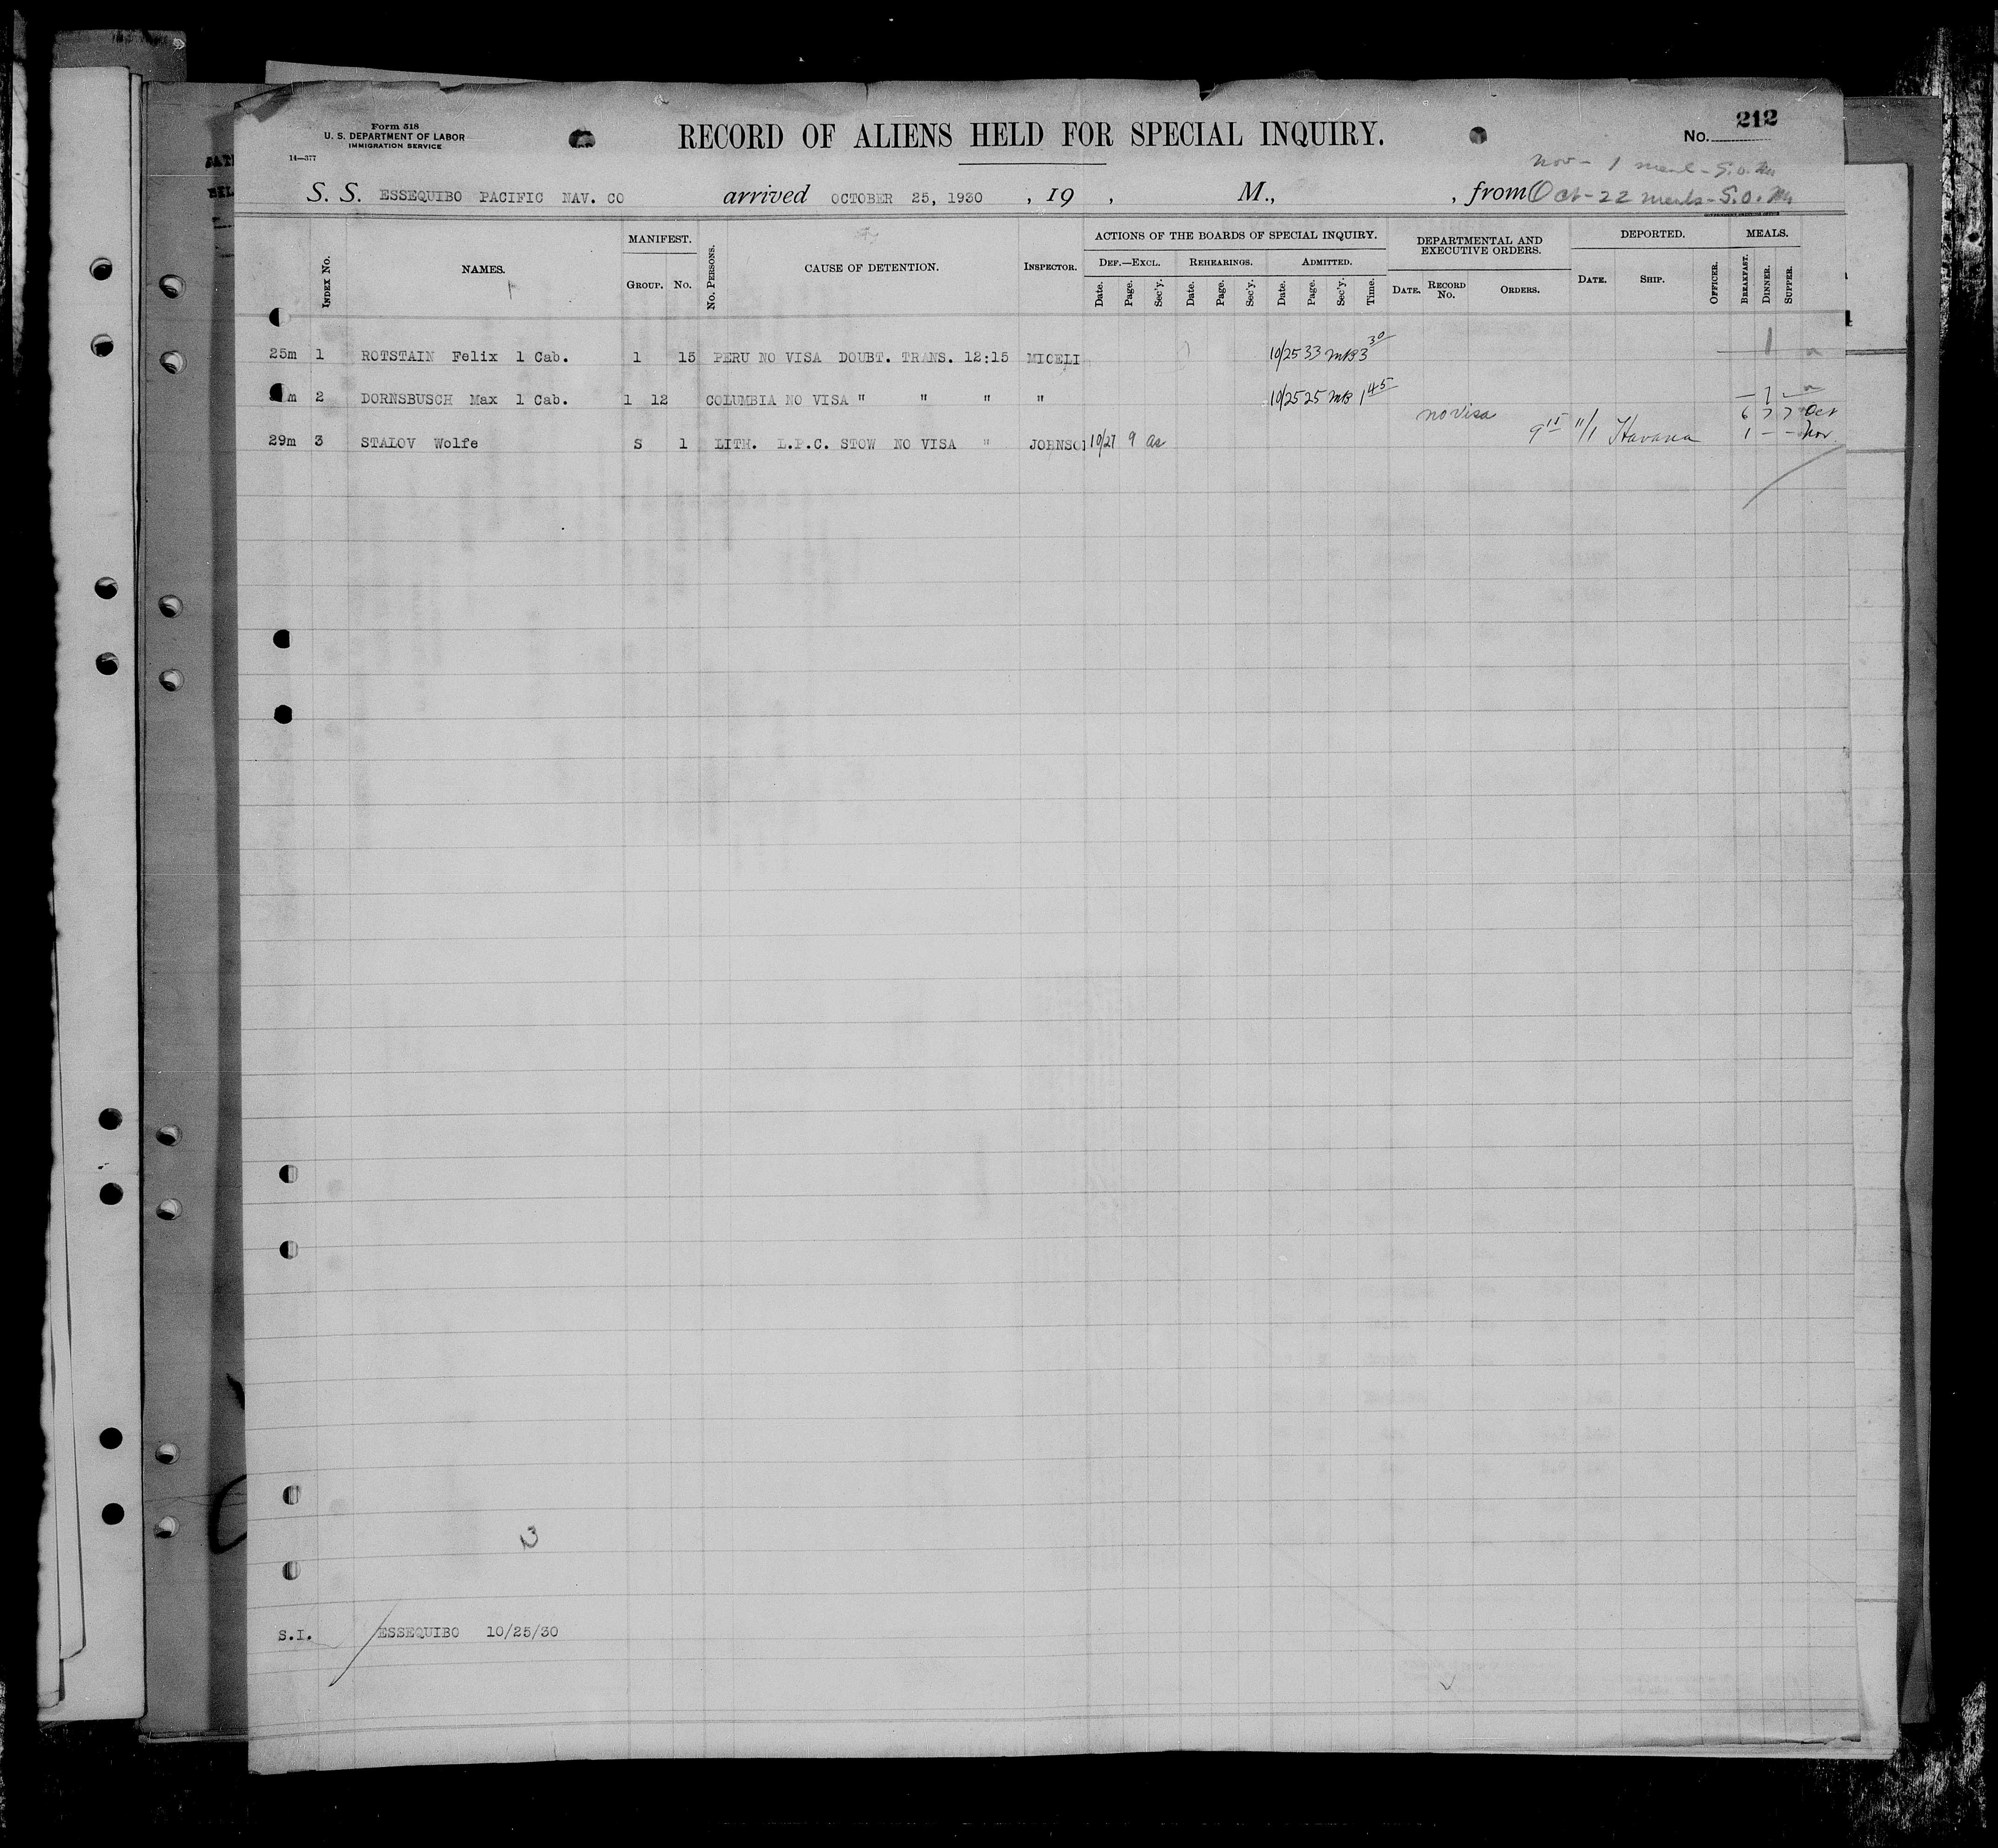 Form 518
U. S. DEPARTMENT OF LABOR
IMMIGRATION SERVICE
14—377
RECORD OF ALIENS HELD FOR SPECIAL INQUIRY.
No. 212
Nov - 1 meal - S.O.
S. S. ESSEQUIBO PACIFIC NAV. CO arrived OCTOBER 25, 1930 , 19 , M., , from Oct - 22 meals - S.O.
GOVERNMENT PRINTING OFFICE
INDEX No. NAMES. MANIFEST. GROUP. No. No. PERSONS. CAUSE OF DETENTION. INSPECTOR. ACTIONS OF THE BOARDS OF SPECIAL INQUIRY. DEPARTMENTAL AND EXECUTIVE ORDERS. DEPORTED. MEALS.
DEF.—EXCL. REHEARINGS. ADMITTED.
Date. Page. Sec'y. Date. Page. Sec'y. Date. Page. Sec'y. Time. DATE. RECORD No. ORDERS. DATE. SHIP. OFFICER. BREAKFAST. DINNER. SUPPER.
25m 1 ROTSTAIN Felix 1 Cab. 1 15 PERU NO VISA DOUBT. TRANS. 12:15 MICELI 10/25 33 MB 3 30 1
m 2 DORNSBUSCH Max 1 Cab. 1 12 COLUMBIA NO VISA " " " " 10/25 25 MB 1 45 — 1 —
no visa 6 7 7 Oct
29m 3 STALOV Wolfe S 1 LITH. L.P.C. STOW NO VISA " JOHNSO 10/27 9 as 9 15 11/1 Havana 1 - - Nov.
3
S.I. ESSEQUIBO 10/25/30